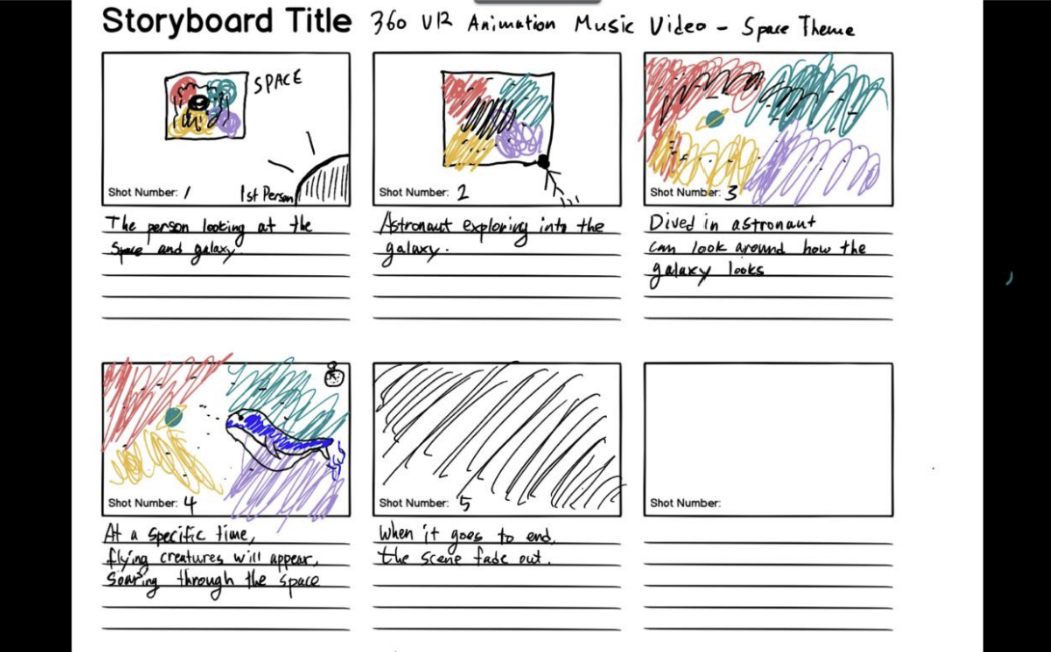 Storyboard Title 360 VR Animation Music Video - Space Theme
SPACE
1st Person
Shot Number: 1
The person looking at the
space and galaxy.
Shot Number: 2
Astronaut exploring into the
galaxy.
Shot Number: 3
Dived in astronaut
can look around how the
galaxy looks
Shot Number: 4
At a specific time,
flying creatures will appear,
soaring through the space
Shot Number: 5
When it goes to end,
the scene fade out.
Shot Number: